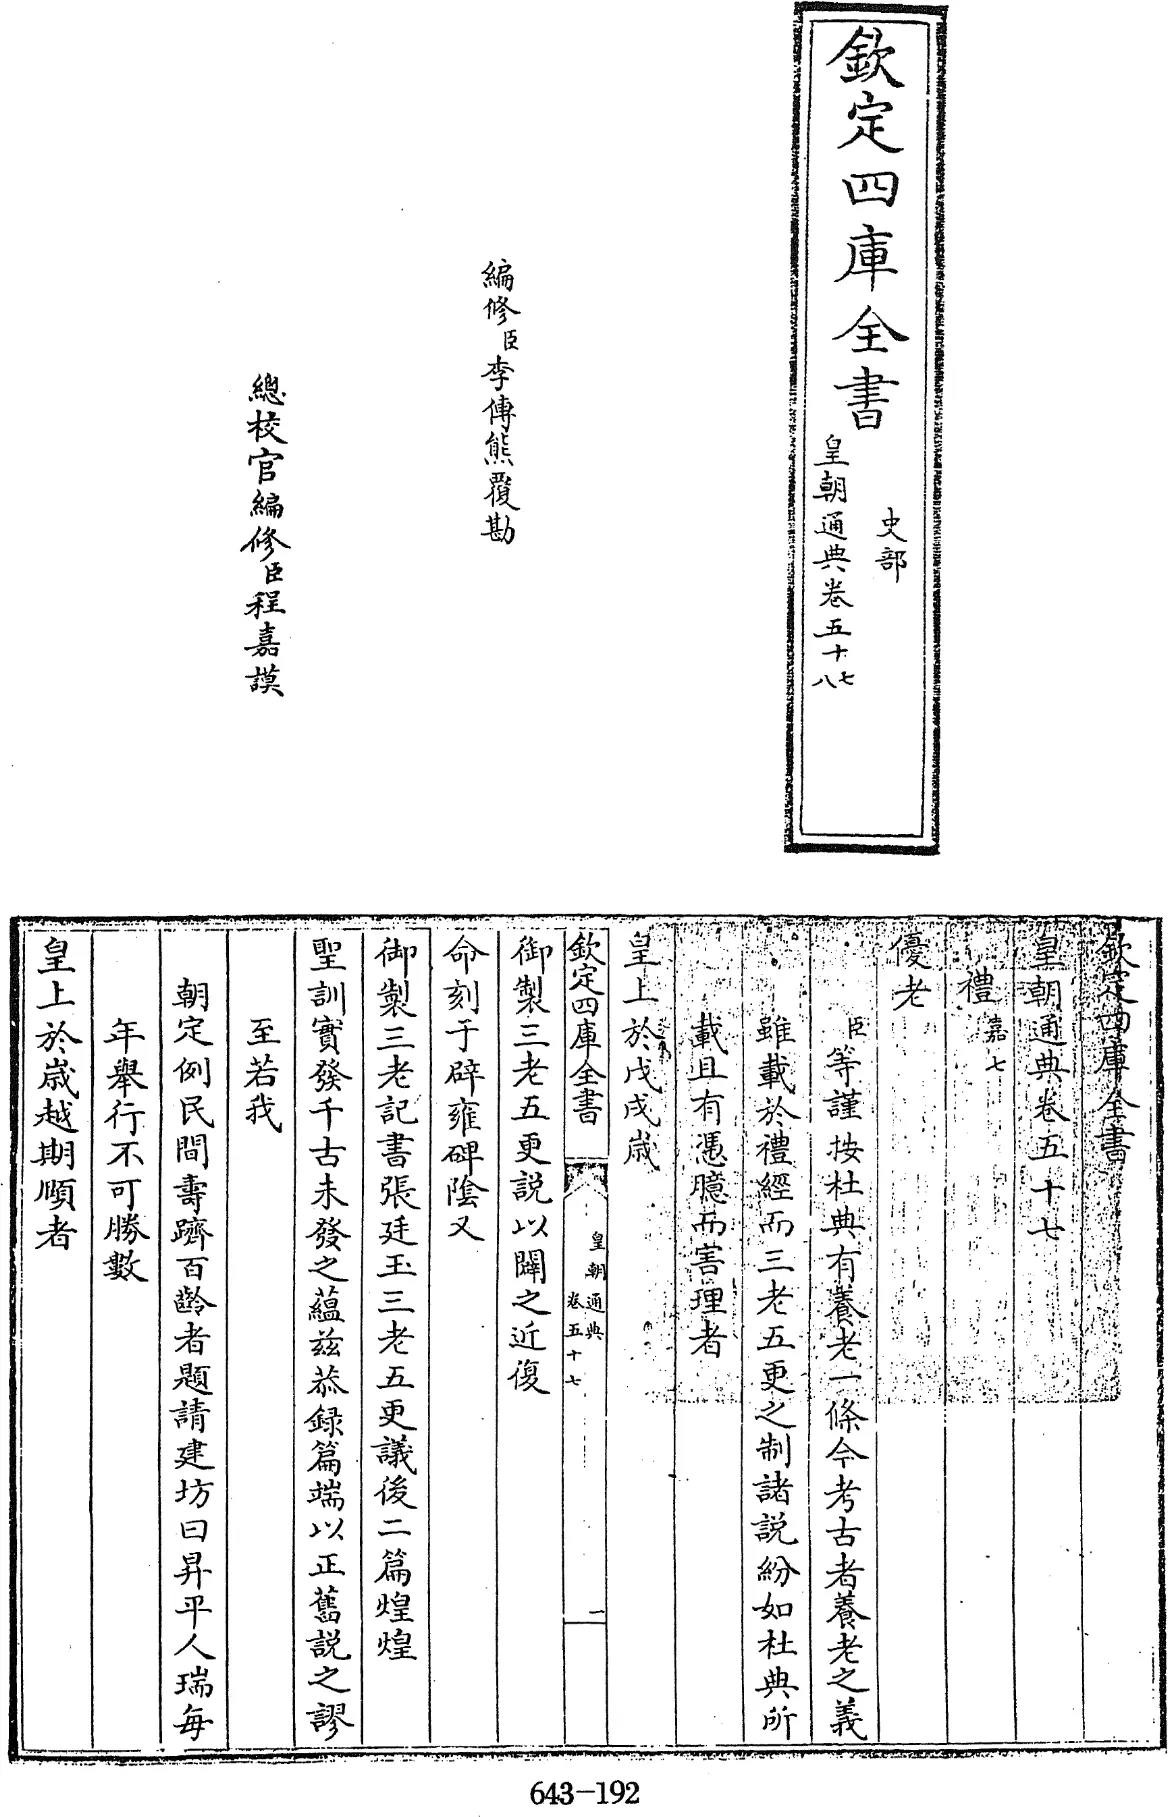 欽定四庫全書
史部
皇朝通典卷五十七
八
編修臣李傳熊覆勘
總校官編修臣程嘉謨
欽定四庫全書
皇朝通典卷五十七
禮嘉七
優老
臣等謹按杜典有養老一條今考古者養老之義
雖載於禮經而三老五更之制諸説紛如杜典所
載且有憑臆而害理者
皇上於戊戌歲
欽定四庫全書
皇朝通典
卷五十七
一
御製三老五更説以闢之近復
命刻于辟雍碑陰又
御製三老記書張廷玉三老五更議後二篇煌煌
聖訓實發千古未發之蘊兹恭録篇端以正舊説之謬
至若我
朝定例民間壽躋百齡者題請建坊曰昇平人瑞每
年舉行不可勝數
皇上於歲越期頤者
643-192